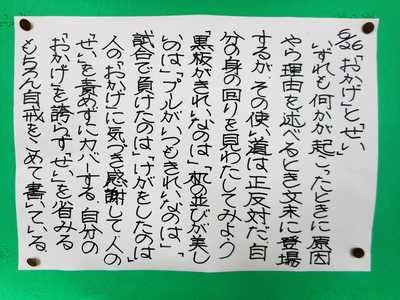 5/26 「おかげ」と「せい」
いずれも何かが起こったときに原因
やら理由を述べるとき文末に登場
するが、その使い道は正反対だ。自
分の身の回りを見わたしてみよう
「黒板がきれいなのは」「机の並びが美し
いのは」「プールがいつもきれいなのは」「
試合で負けたのは」「けがをしたのは」
人の「おかげ」に気づき感謝して人の
「せい」を責めずにカバーする。自分の
「おかげ」を誇らず「せい」を省みる
もちろん自戒をこめて書いている。